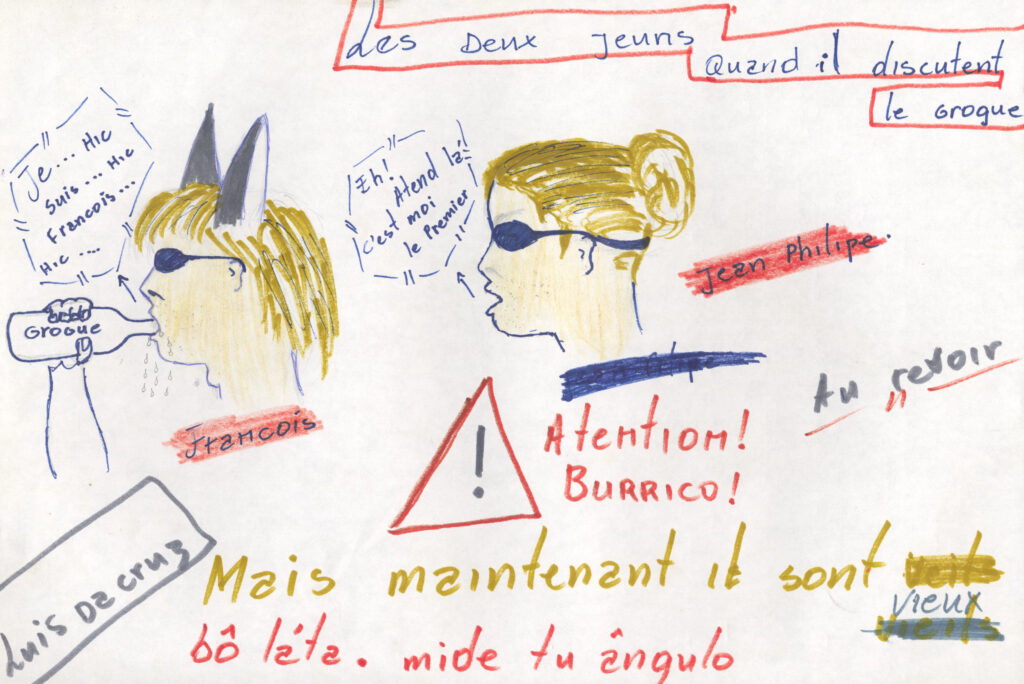 des Deux Jeuns
Quand il discutent
le Grogue
Je... Hic
suis... Hic
Francois...
Hic ...
Eh!
Atend lá
c'est moi
le Premier
Grogue
Jean Philipe.
Francois
Au revoir
!
Atention!
Burrico!
Luis Dacruz
Mais maintenant it sont
vieux
bô láta. mide tu ângulo